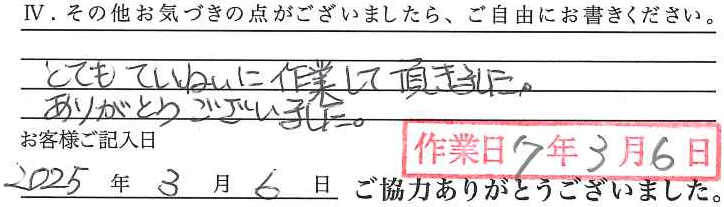 Ⅳ．その他お気づきの点がございましたら、ご自由にお書きください。
とてもていねいに作業して頂きました。
ありがとうございました。
お客様ご記入日
作業日7年3月6日
2025年3月6日
ご協力ありがとうございました。